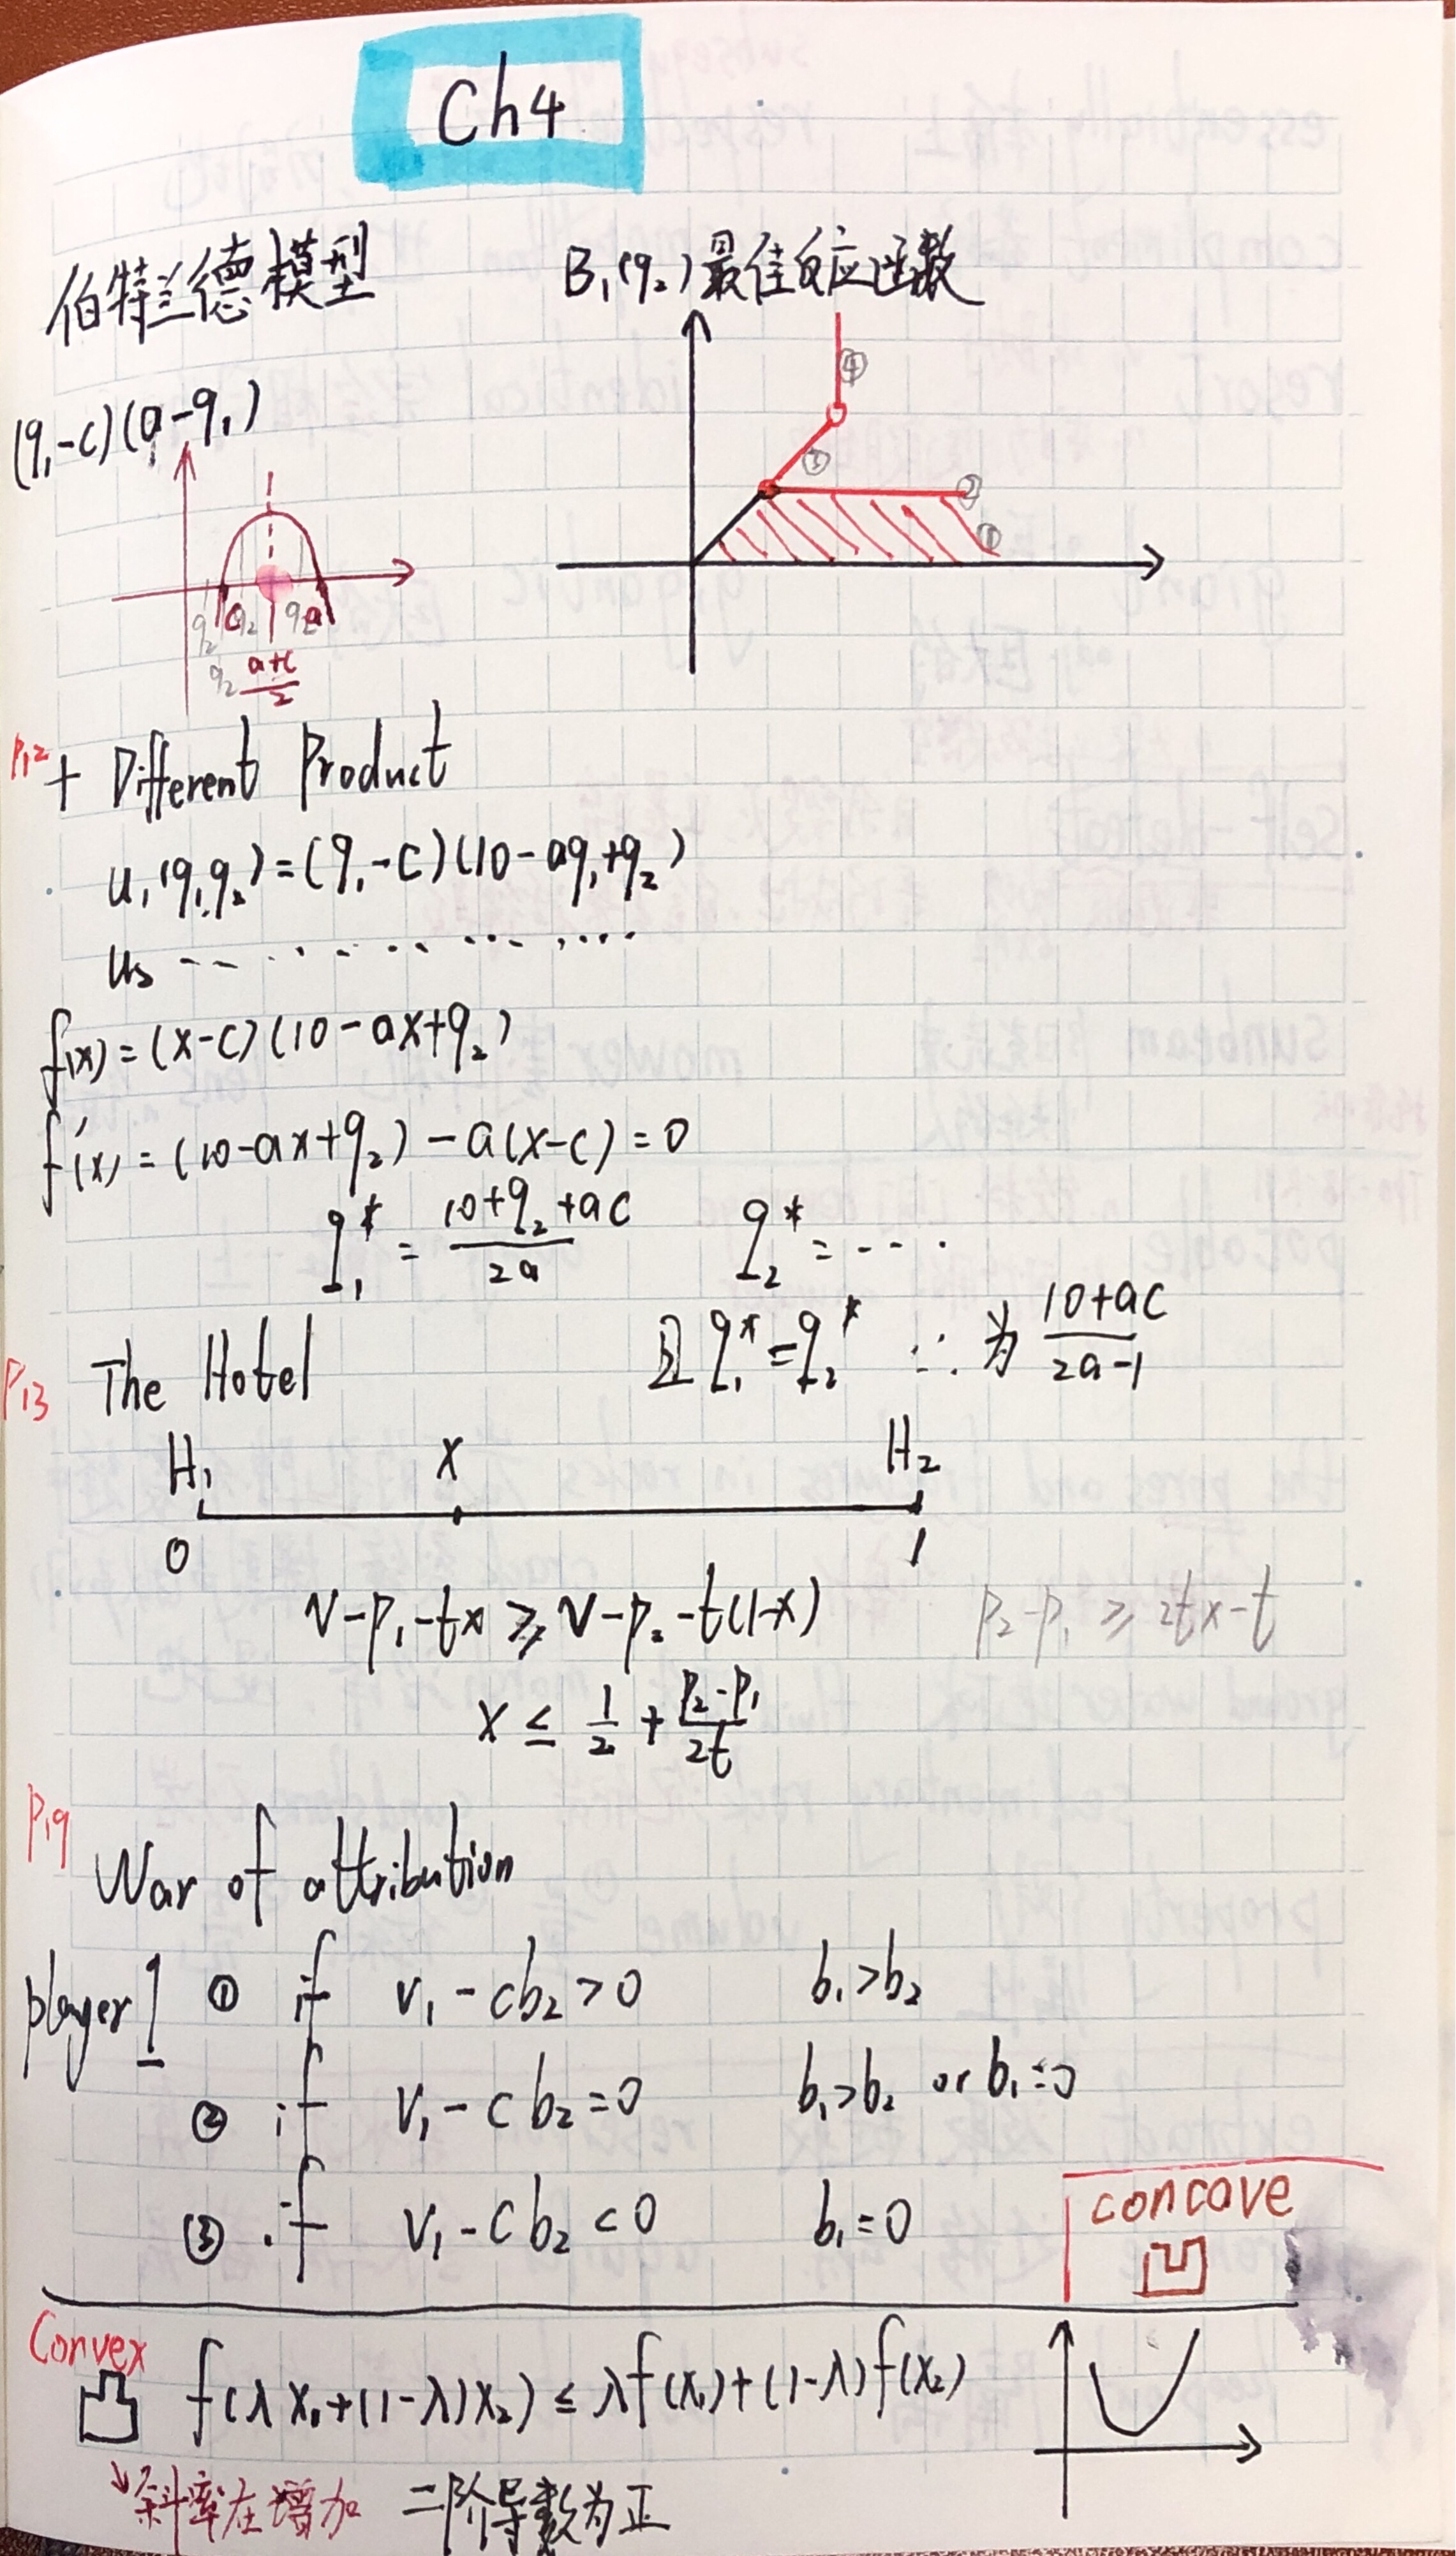 Ch4
伯特兰德模型
B₁(q₂)最佳反应函数
(q₁-c)(a-q₁)
④
③
②
①
q₂ c q₂ q₂ a
q₂ a+c/2
P12 + Different Product
u₁(q₁,q₂)=(q₁-c)(10-aq₁+q₂)
u₂ -- · · - · · ··· ····
f(x)=(x-c)(10-ax+q₂)
f'(x)=(10-ax+q₂)-a(x-c)=0
q₁* = 10+q₂+ac/2a q₂* = ----
且q₁*=q₂* ∴为 10+ac/2a-1
P13 The Hotel
H₁ x H₂
0 1
v-p₁-tx ≥ v-p₂-t(1-x) p₂-p₁ ≥ 2tx-t
x ≤ 1/2 + p₂-p₁/2t
P19
War of attribution
player 1 ① if v₁-cb₂>0 b₁>b₂
② if v₁-cb₂=0 b₁>b₂ or b₁=0
③ if v₁-cb₂<0 b₁=0
concave
凹
Convex
凸 f(λx₁+(1-λ)x₂) ≤ λf(x₁)+(1-λ)f(x₂)
↘斜率在增加 二阶导数为正